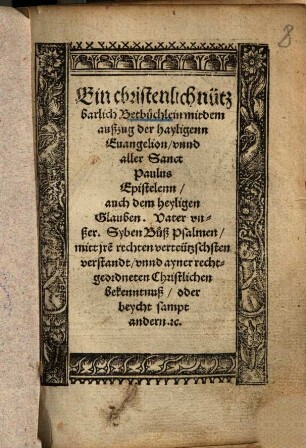 8
Ein christenlich nütz
barlich Betbüchlein mit dem
außzug der hayligenn
Euangelion / vnnd
aller Sanct
Paulus
Epistelenn /
auch dem heyligen
Glauben. Vater vn-
ßer. Syben Bůß Psalmen /
mitt jrē rechten verteützschsten
verstandt / vnnd ayner recht-
geordneten Christlichen
Bekenntnuß / oder
beycht sampt
andern. ꝛc.